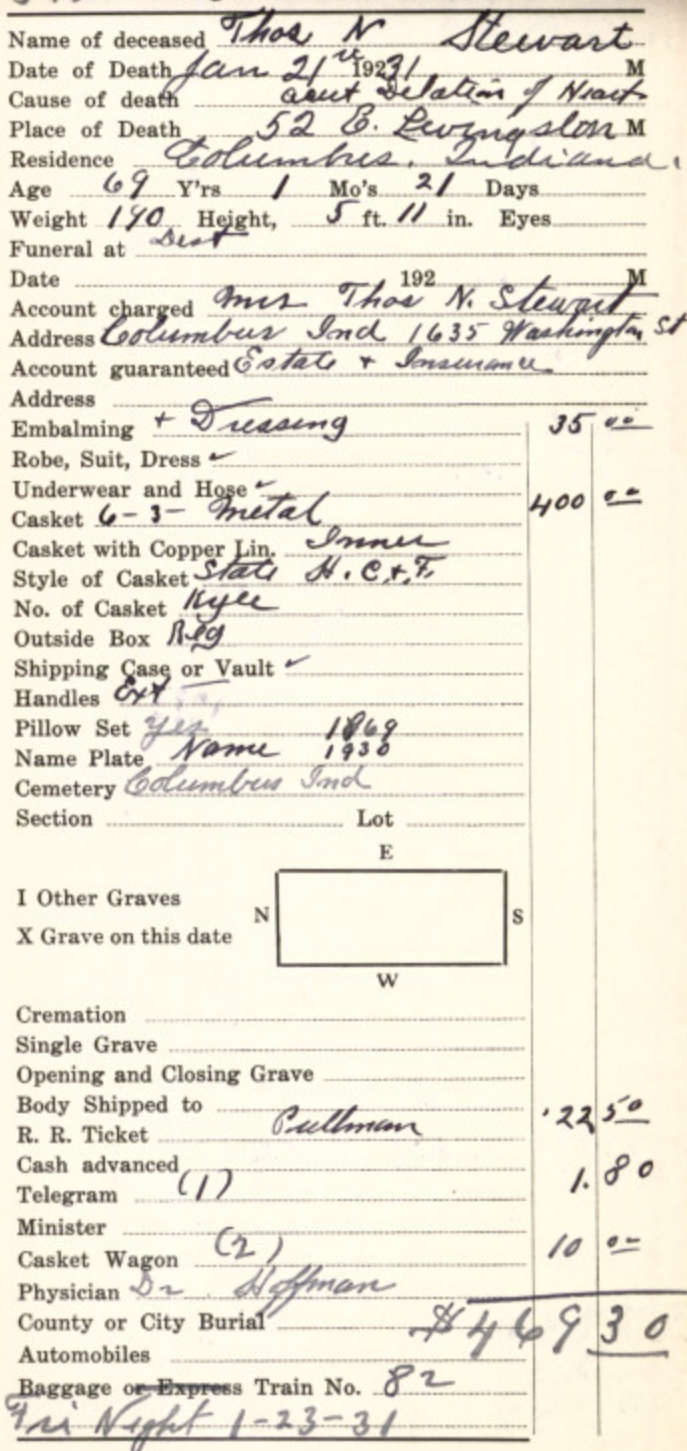 Name of deceased Thos N Stewart
Date of Death Jan 21 1931 M
Cause of death acut Delation of Heart
Place of Death 52 E. Livingston M
Residence Columbus, Indiana.
Age 69 Y'rs 1 Mo's 21 Days
Weight 190 Height, 5 ft. 11 in. Eyes
Funeral at
Date 192 M
Account charged Mrs Thos N. Stewart
Address Columbus Ind 1635 Washington St
Account guaranteed Estate + Insurance
Address
Embalming + Dressing 35 00
Robe, Suit, Dress ✓
Underwear and Hose ✓
Casket 6-3- Metal 400 00
Casket with Copper Lin. Inner
Style of Casket State H. C. + F.
No. of Casket Kyle
Outside Box Reg
Shipping Case or Vault ✓
Handles Ext
Pillow Set yes 1869
Name Plate Name 1930
Cemetery Columbus Ind
Section Lot
E
I Other Graves
N S
X Grave on this date
W
Cremation
Single Grave
Opening and Closing Grave
Body Shipped to
R. R. Ticket Pullman 22 50
Cash advanced
Telegram (1) 1.80
Minister
Casket Wagon (2) 10 00
Physician Dr. Hoffman
County or City Burial $469 30
Automobiles
Baggage or Express Train No. 82
Fri Night 1-23-31